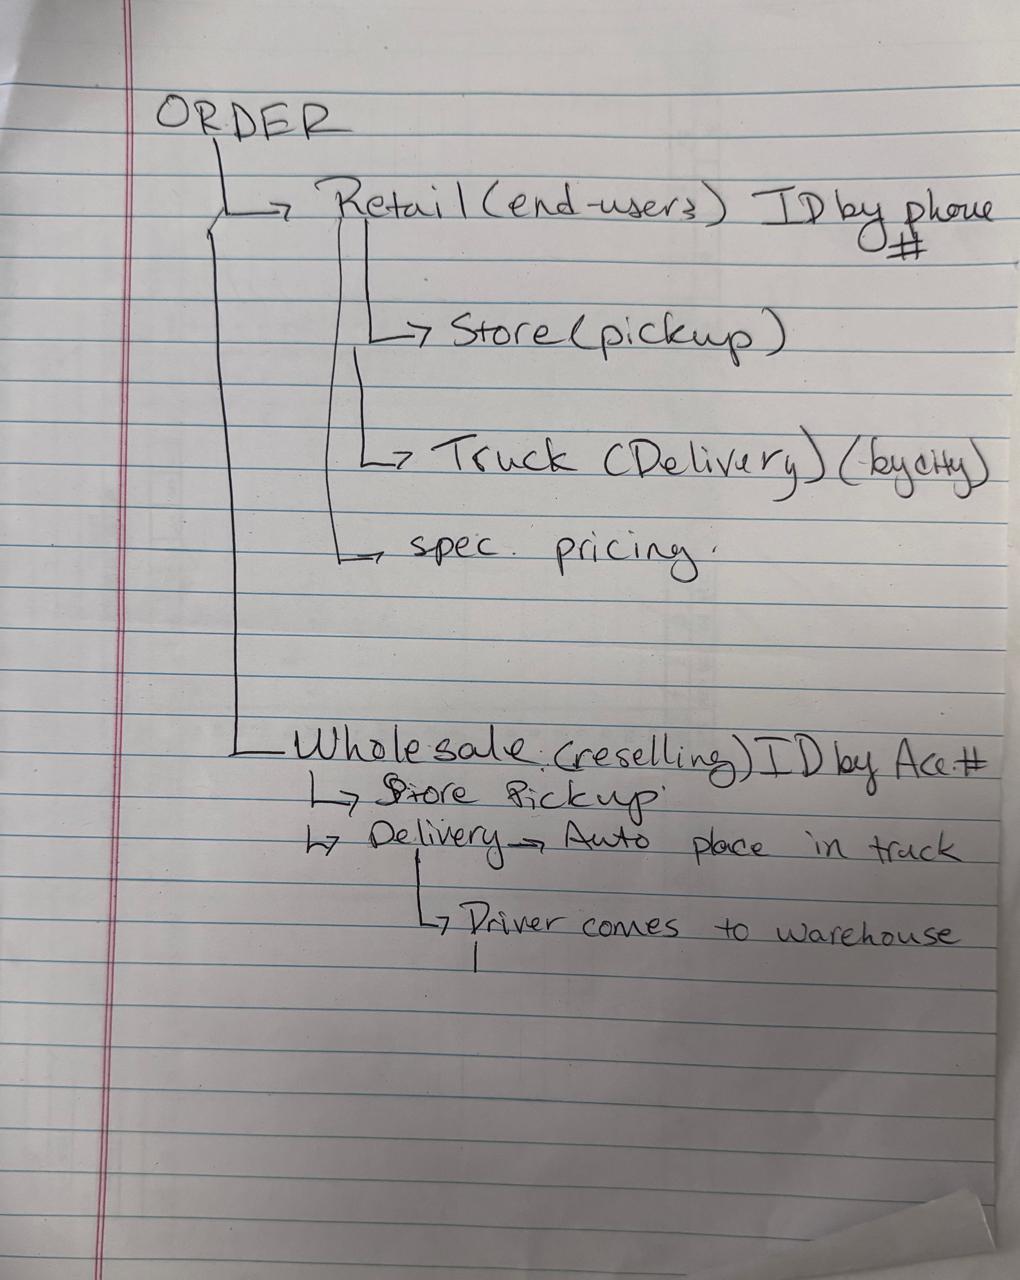 ORDER
Retail (end-users) ID by phone
#
Store (pickup)
Truck (Delivery) (by city)
spec. pricing.
Wholesale (reselling) ID by Acc. #
Store Pickup
Delivery → Auto place in truck
Driver comes to warehouse